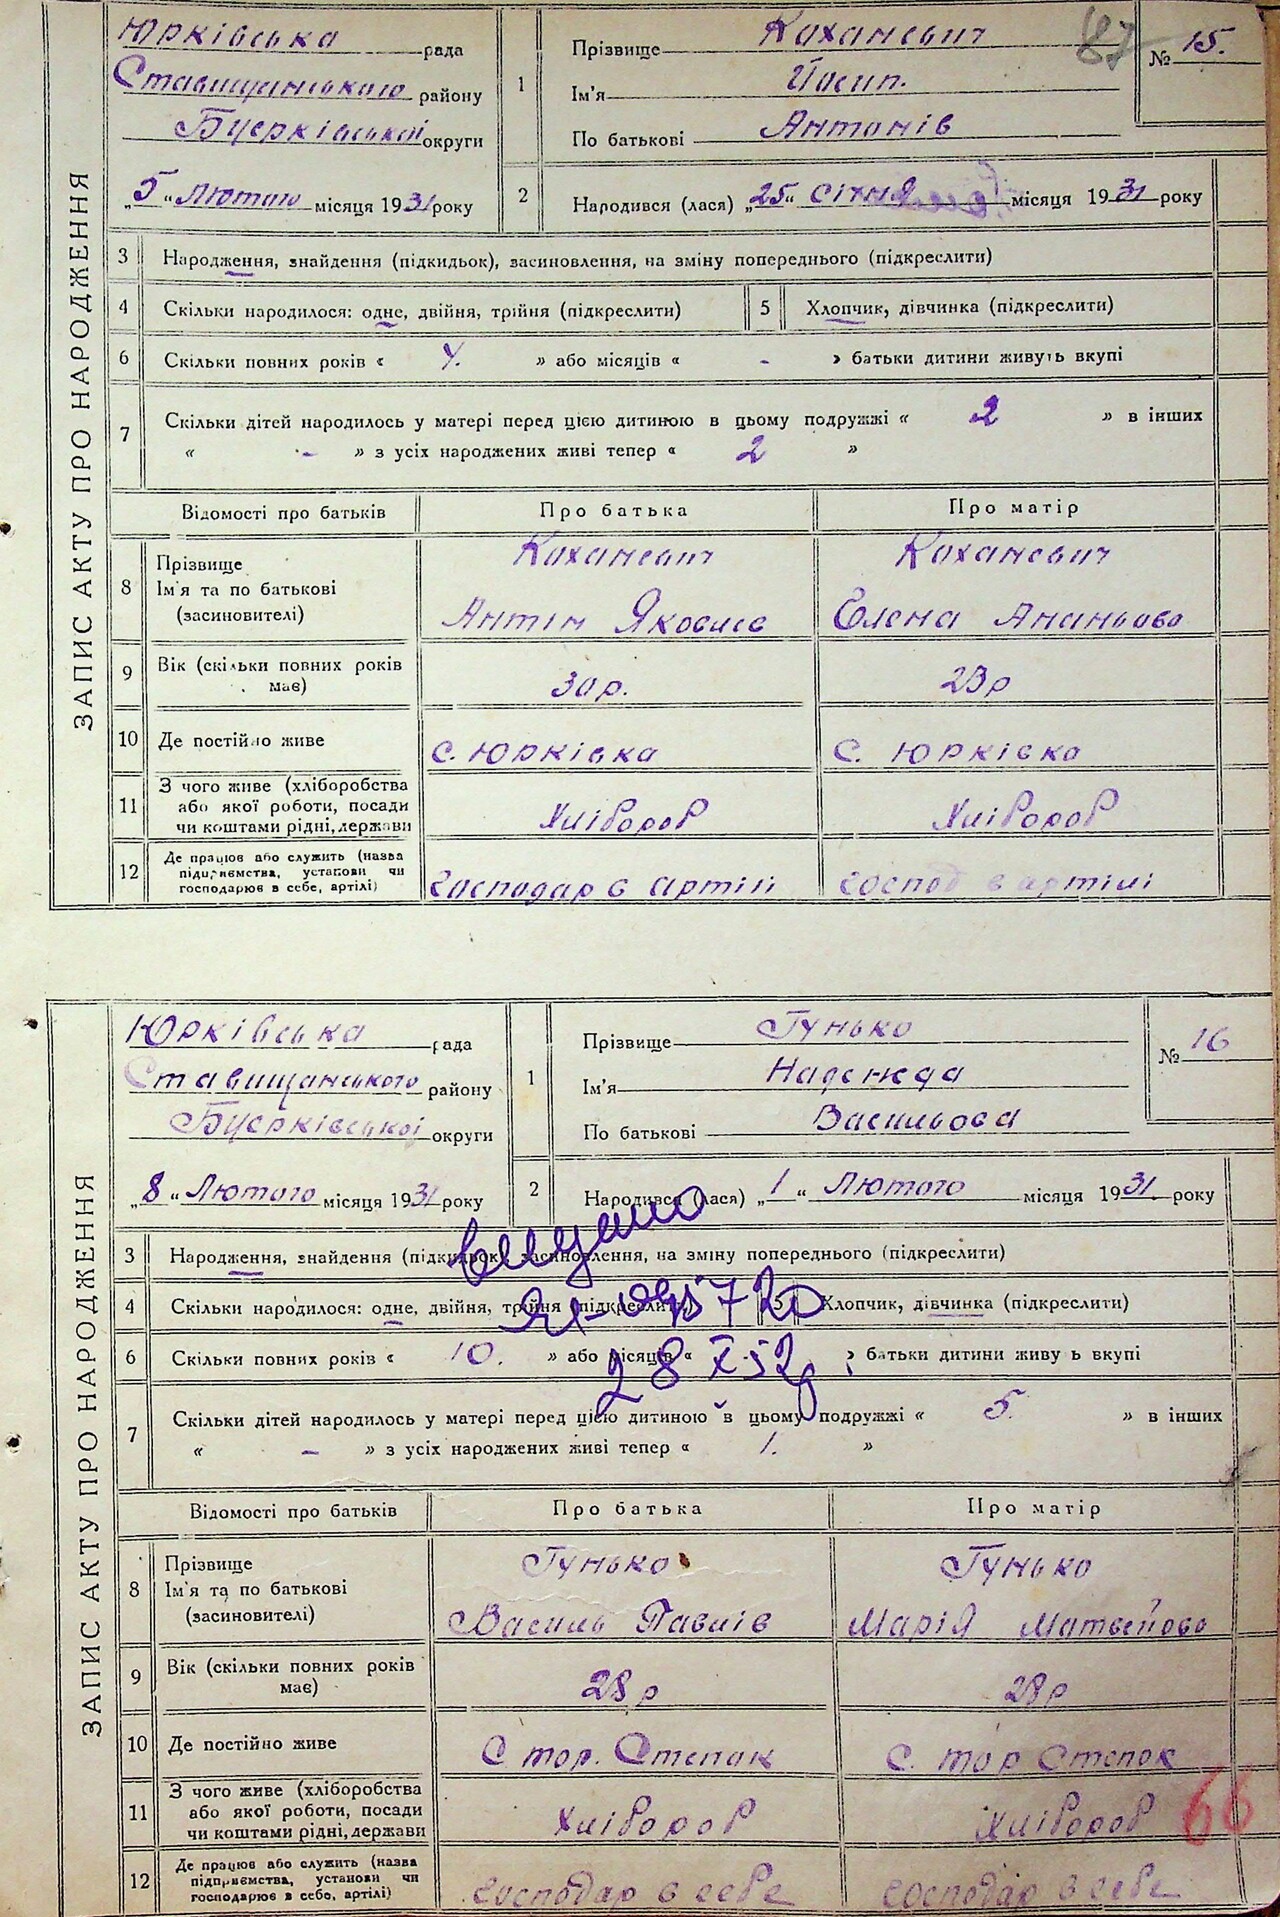 ЗАПИС АКТУ ПРО НАРОДЖЕННЯ
Юрківська рада
Ставищанського району
Бцерківської округи
„5“ Лютого місяця 1931 року
87
№ 15.
1 Прізвище Коханевич
Ім'я Йосип.
По батькові Антонів
2 Народився (лася) „25“ Січня місяця 1931 року
3 Народження, знайдення (підкидьок), засиновлення, на зміну попереднього (підкреслити)
4 Скільки народилося: одне, двійня, трійня (підкреслити) 5 Хлопчик, дівчинка (підкреслити)
6 Скільки повних років « 4. » або місяців « - » батьки дитини живуть вкупі
7 Скільки дітей народилось у матері перед цією дитиною в цьому подружжі « 2 » в інших
« - » з усіх народжених живі тепер « 2 »
Відомості про батьків Про батька Про матір
8 Прізвище Коханевич Коханевич
Ім'я та по батькові
(засиновителі) Антін Яковлів Єлена Ананьова
9 Вік (скільки повних років
має) 30р. 23р
10 Де постійно живе с. Юрківка с. Юрківка
11 З чого живе (хліборобства
або якої роботи, посади
чи коштами рідні, держави Хлібороб Хлібороб
12 Де працює або служить (назва
підприємства, установи чи
господарює в себе, артілі) господар в артілі господ в артілі
ЗАПИС АКТУ ПРО НАРОДЖЕННЯ
Юрківська рада
Ставищанського району
Бцерківської округи
„8“ Лютого місяця 1931 року
№ 16
1 Прізвище Гунько
Ім'я Надежда
По батькові Васильова
2 Народився (лася) „1“ Лютого місяця 1931. року
3 Народження, знайдення (підкидьок), засиновлення, на зміну попереднього (підкреслити)
4 Скільки народилося: одне, двійня, трійня (підкреслити) 5 Хлопчик, дівчинка (підкреслити)
6 Скільки повних років « 10. » або місяців « » батьки дитини живу ь вкупі
28 X-52р
7 Скільки дітей народилось у матері перед цією дитиною в цьому подружжі « 5. » в інших
« - » з усіх народжених живі тепер « 1. »
Відомості про батьків Про батька Про матір
8 Прізвище Гунько Гунько
Ім'я та по батькові
(засиновителі) Василь Павлів Марія Матвейова
9 Вік (скільки повних років
має) 28р 28р
10 Де постійно живе С тор. Степок с. тор Степок
11 З чого живе (хліборобства
або якої роботи, посади
чи коштами рідні, держави Хлібороб Хлібороб
66
12 Де працює або служить (назва
підприємства, установи чи
господарює в себе, артілі) господар в себе господар в себе